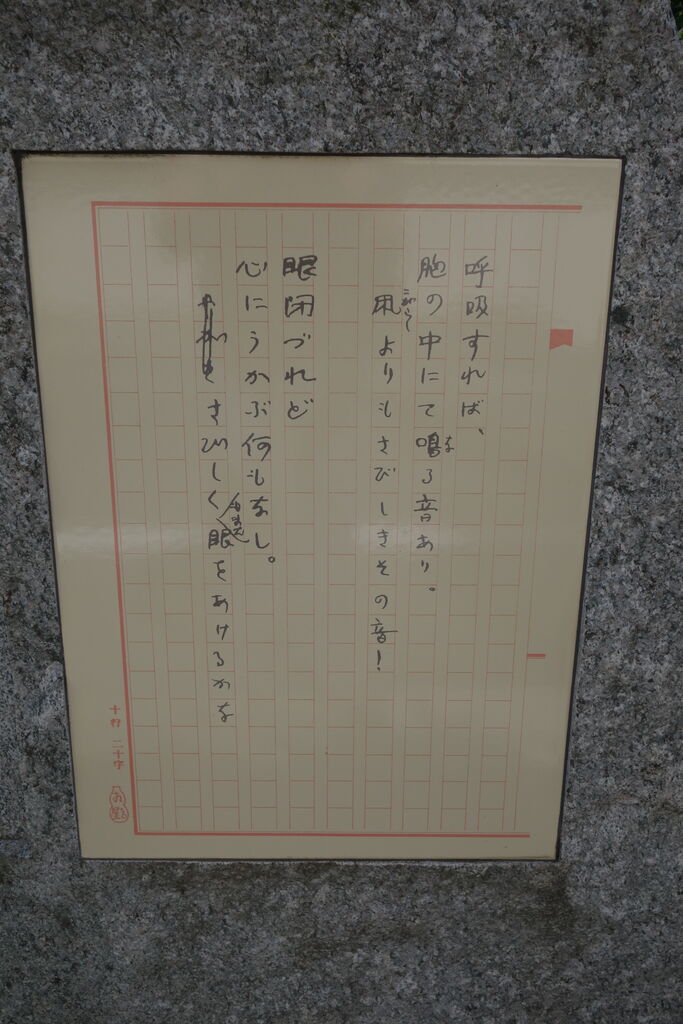 呼吸すれば、
胸の中にて鳴る音あり。
な
凩よりもさびしきその音!
こがらし
眼閉づれど
心にうかぶ何もなし。
さびしく眼をあけるかな
もまた
十行 二十字